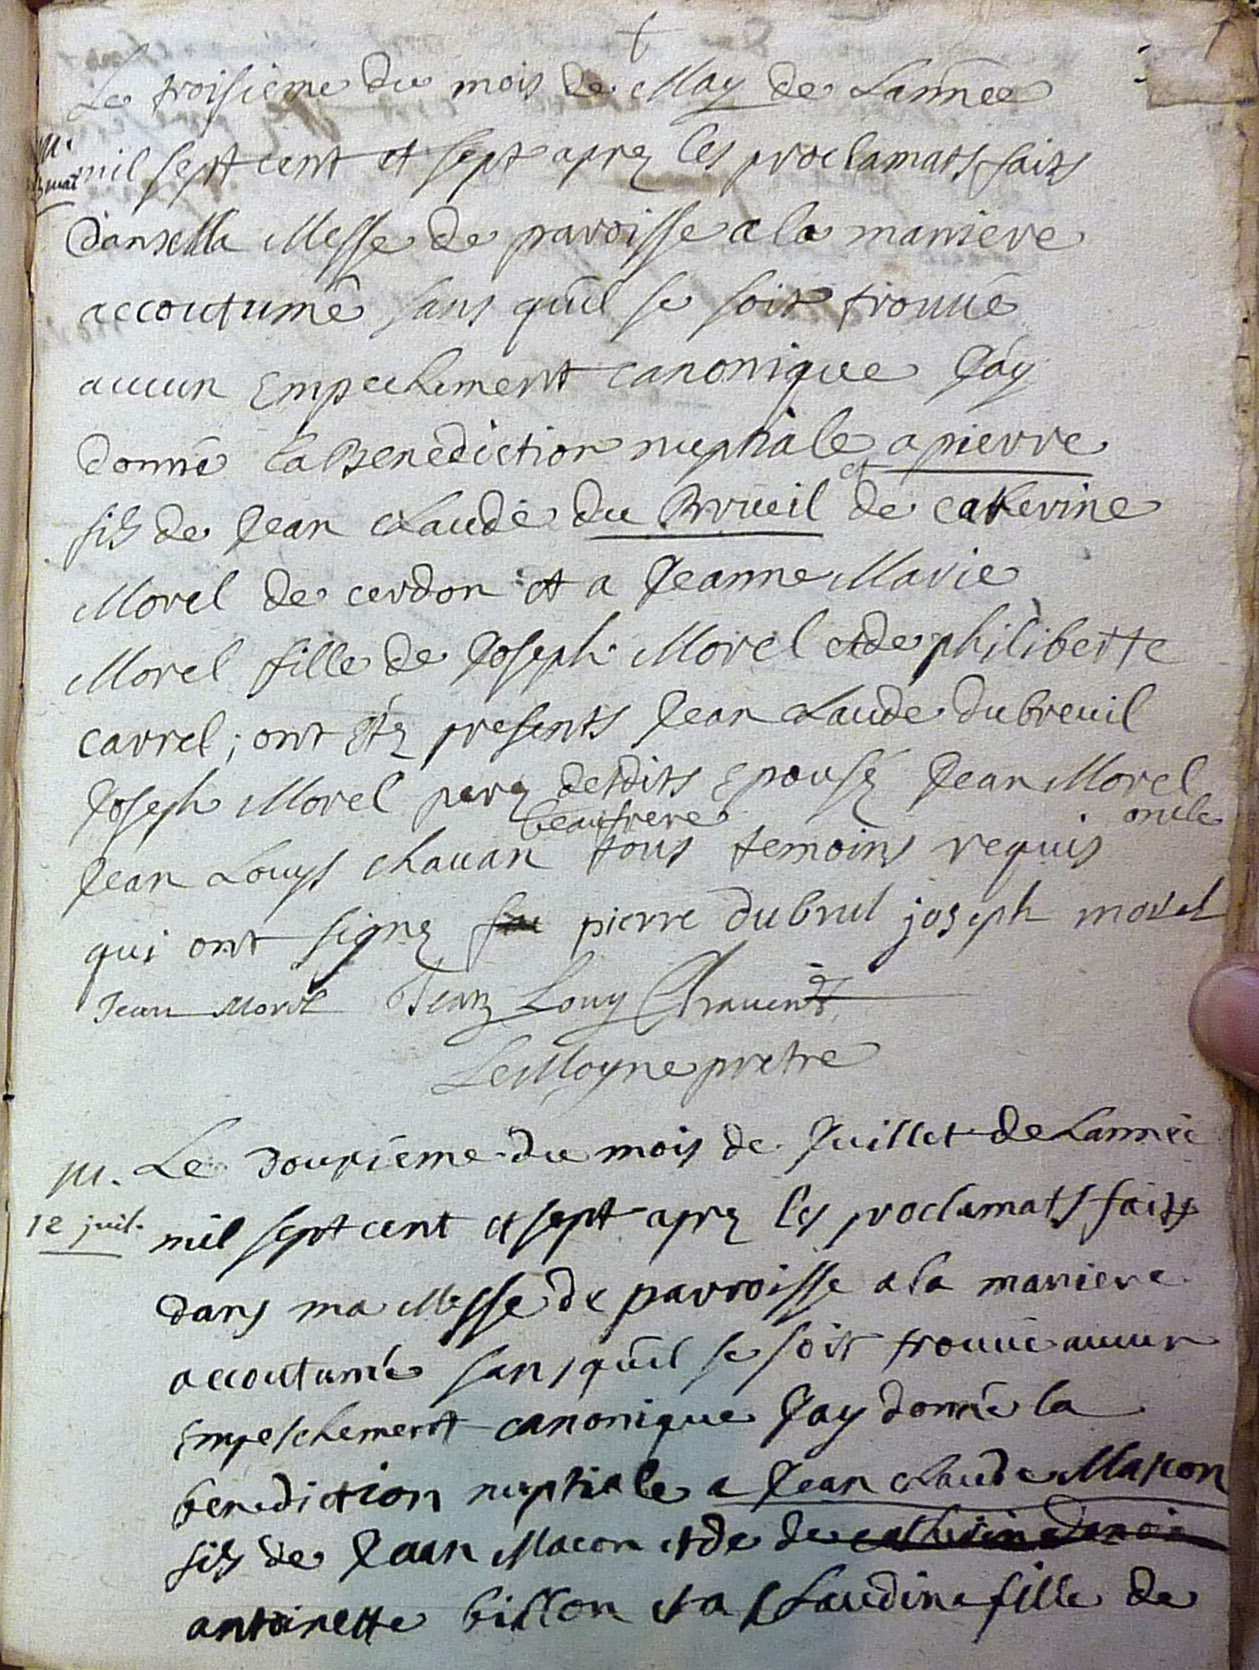 Le troisieme du mois de May de Lannee
m.
3 mai
mil sept cent et sept aprez les proclamats faits
dans Messe de paroisse a la maniere
accoutumé sans qu'il se soit trouué
aucun Empechement canonique Jay
donné la Benediction nuptiale a pierre
filz de Jean Claude du Brueil et de caterine
Morel de cerdon et a Jeanne Marie
Morel fille de Joseph Morel et de philiberte
carrel; ont étéz presents Jean Claude dubreuil
Joseph Morel perez desdits Epouséz Jean Morel oncle
Jean Louys chauan beaufrere tous temoins requis
qui ont signez pierre dubrul joseph morel
Jean Morel Jean Louy Chauent
LeMoyne pretre
m. Le Douzieme du mois de Juillet de Lannéé
12 juil.
mil sept cent et sept aprez les proclamats faits
dans ma Messe de parroisse a la maniere
accoutumé sans qu'il se soit trouué aucun
Empeschement canonique Jay donné la
benediction nuptiale a Jean Claude Macon
filz de Jean Macon et de de catherine
antoinette billon et a Claudine fille de